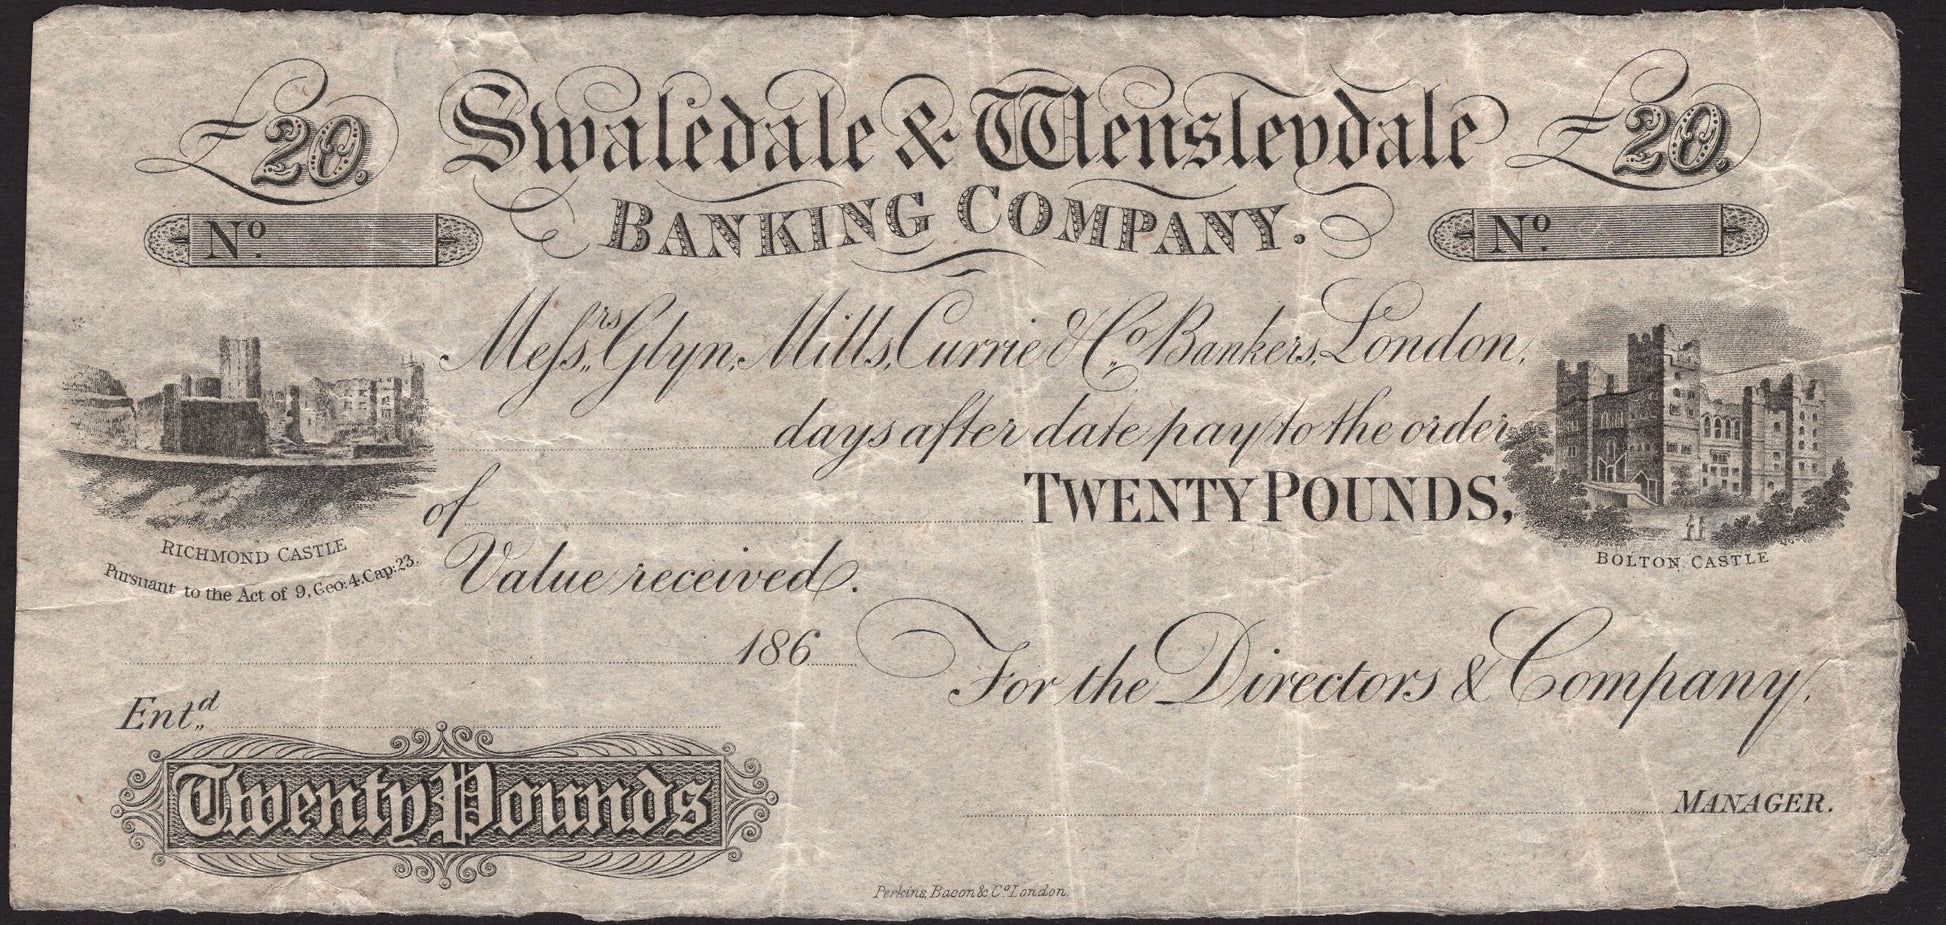 £20. Swaledale & Wensleydale £20.
BANKING COMPANY.
No. No.
Messrs. Glyn, Mills, Currie & Co. Bankers, London,
days after date pay to the order
of TWENTY POUNDS,
Value received.
RICHMOND CASTLE
Pursuant to the Act of 9, Geo: 4. Cap: 23.
BOLTON CASTLE
186
For the Directors & Company,
Entd.,,
Twenty Pounds
MANAGER.
Perkins, Bacon & Co. London.